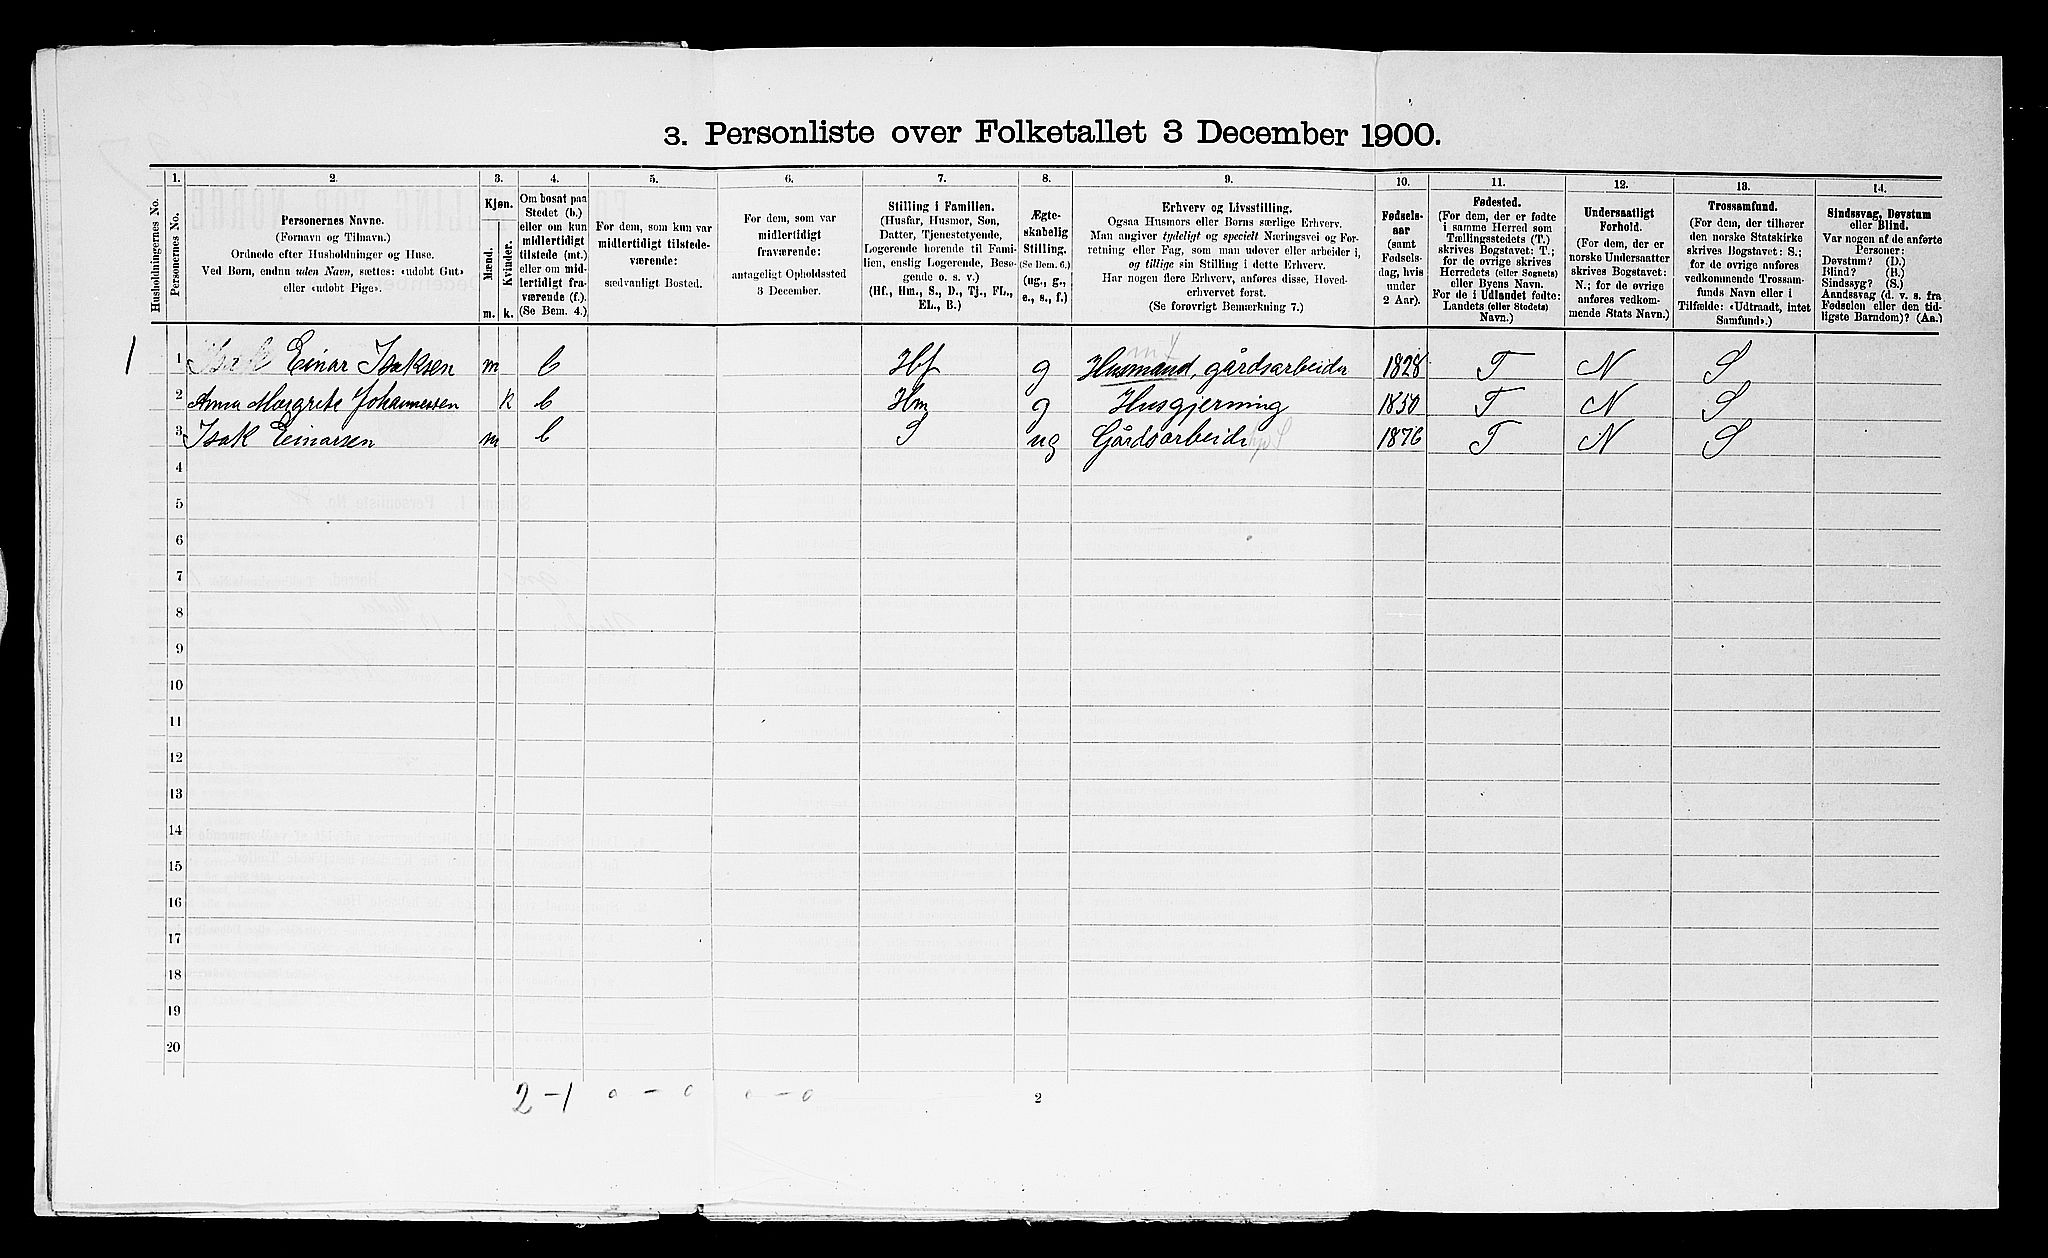 3. Personliste over Folketallet 3 December 1900.
1. 2. 3. 4. 5. 6. 7. 8. 9. 10. 11. 12. 13. 14.
Husholdningernes No.
Personernes No.
Personernes Navne.
(Fornavn og Tilnavn.)
Ordnede efter Husholdninger og Huse.
Ved Børn, endnu uden Navn, sættes: «udøbt Gut»
eller «udøbt Pige».
Kjøn.
Mænd.
Kvinder.
m. k.
Om bosat paa
Stedet (b.)
eller om kun
midlertidigt
tilstede (mt.)
eller om mid-
lertidigt fra-
værende (f.)
(Se Bem. 4.)
For dem, som kun var
midlertidigt tilstede-
værende:
sædvanligt Bosted.
For dem, som var
midlertidigt
fraværende:
antageligt Opholdssted
3 December.
Stilling i Familien.
(Husfar, Husmor, Søn,
Datter, Tjenestetyende,
Logerende hørende til Fami-
lien, enslig Logerende, Besø-
gende o. s. v.)
(Hf., Hm., S., D., Tj., FL.,
EL., B.)
Ægte-
skabelig
Stilling.
(Se Bem. 6.)
(ug., g.,
e., s., f.)
Erhverv og Livsstilling.
Ogsaa Husmors eller Børns særlige Erhverv.
Man angiver tydeligt og specielt Næringsvei og For-
retning eller Fag, som man udøver eller arbeider i,
og tillige sin Stilling i dette Erhverv.
Har nogen flere Erhverv, anføres disse, Hoved-
erhvervet først.
(Se forøvrigt Bemærkning 7.)
Fødsels-
aar
(samt
Fødsels-
dag, hvis
under
2 Aar).
Fødested.
(For dem, der er fødte
i samme Herred som
Tællingsstedets (T.)
skrives Bogstavet: T.;
for de øvrige skrives
Herredets (eller Sognets)
eller Byens Navn.
For de i Udlandet fødte:
Landets (eller Stedets)
Navn.)
Undersaatligt
Forhold.
(For dem, der er
norske Undersaatter
skrives Bogstavet:
N.; for de øvrige
anføres vedkom-
mende Stats Navn.)
Trossamfund.
(For dem, der tilhører
den norske Statskirke
skrives Bogstavet: S.;
for de øvrige anføres
vedkommende Trossam-
funds Navn eller i
Tilfælde: «Udtraadt, intet
Samfund».)
Sindssvag, Døvstum
eller Blind.
Var nogen af de anførte
Personer:
Døvstum? (D.)
Blind? (B.)
Sindssyg? (S.)
Aandssvag (d. v. s. fra
Fødselen eller den tid-
ligste Barndom)? (Aa.)
1 1 Isak Einar Isaksen m b Hf g Husmand, gårdsarbeider 1828 T N S
2 Anna Margrete Johannessen k b Hm g Husgjerning 1830 T N S
3 Isak Einarsen m b S ug Gårdsarbeide 1876 T N S
4
5
6
7
8
9
10
11
12
13
14
15
16
17
18
19
20
2-1 0-0 0-0
2